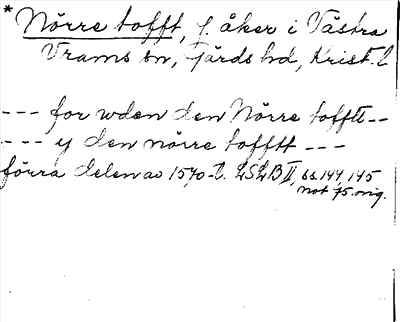 * Nörre tofft, f. åker i Västra
Vrams sn, Gärds hd, Krist. l
--- for wden den Nörre tofftt --
--- y den nörre tofftt ---
förra delen av 1570-t. LSLB II, ss. 144, 145
not 75. orig.